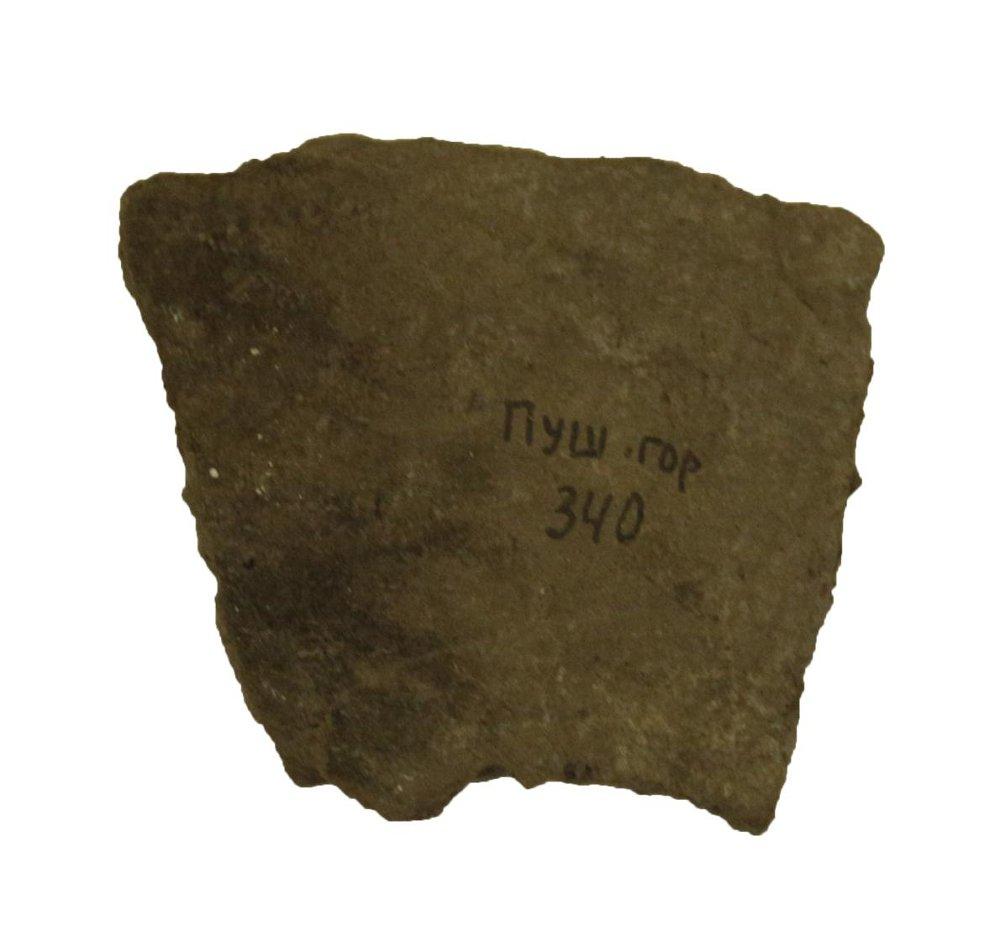 Пуш.гор
340